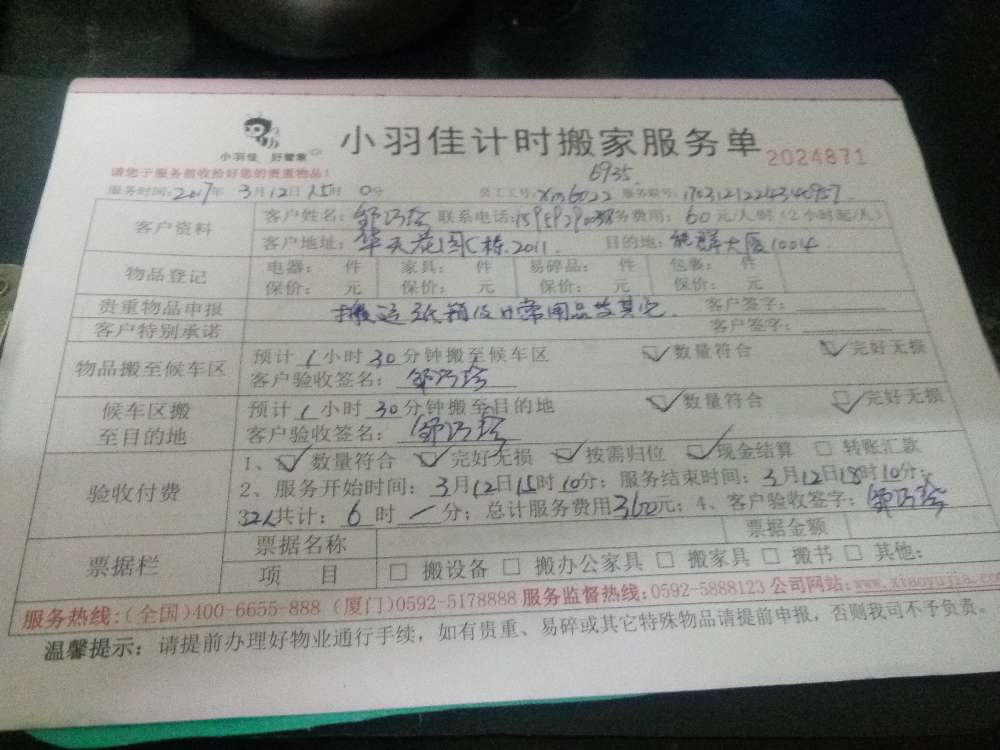 小羽佳 好管家
小羽佳计时搬家服务单
2024871
请您于服务前收拾好您的贵重物品!
6935
服务时间:2017年 3月12日 15时 0分 员工工号:xm6022 服务单号:
客户资料
客户姓名: 联系电话: 服务费用:60元/人时(2小时起/人)
客户地址:华天花园C栋.2011. 目的地:能群大厦1004.
物品登记
电器: 件 家具: 件 易碎品: 件 包裹: 件
保价: 元 保价: 元 保价: 元 保价: 元
贵重物品申报 搬运纸箱及日常用品及其它. 客户签字:
客户特别承诺 客户签字:
物品搬至候车区
预计1小时30分钟搬至候车区 ☑数量符合 ☑完好无损
客户验收签名:
候车区搬至目的地
预计1小时30分钟搬至目的地 ☑数量符合 ☑完好无损
客户验收签名:
验收付费
1、☑数量符合 ☑完好无损 ☑按需归位 ☑现金结算 □转账汇款
2、服务开始时间:3月12日15时10分;服务结束时间:3月12日18时10分;
3、2人共计:6时一分;总计服务费用360元;4、客户验收签字:
票据栏
票据名称 票据金额
项 目 □搬设备 □搬办公家具 □搬家具 □搬书 □其他:
服务热线:(全国)400-6655-888 (厦门)0592-5178888 服务监督热线:0592-5888123 公司网站:www.xiaoyujia.com
温馨提示:请提前办理好物业通行手续,如有贵重、易碎或其它特殊物品请提前申报,否则我司不予负责。